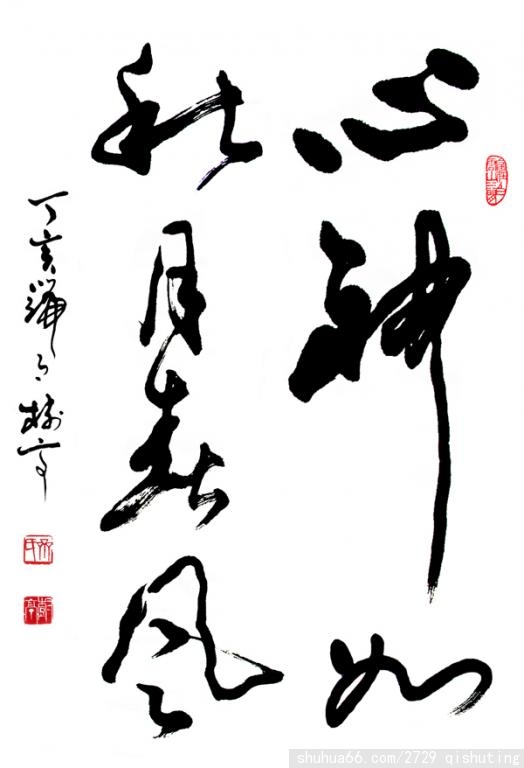 心神如
秋月春风
丁亥 树亭
shuhua66.com/2729 qishuting